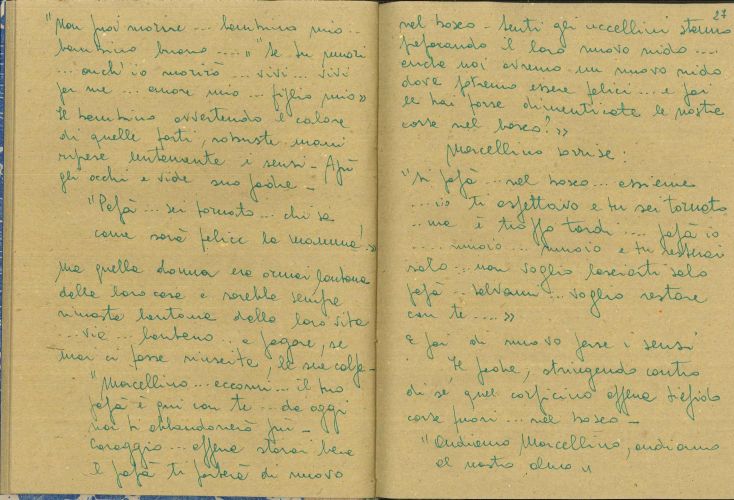 "Non puoi morire ... bambino mio ..
bambino buono ....." "Se tu muori
... anch'io morirò .... vivi ... vivi
per me ... amore mio ... figlio mio»
Il bambino avvertendo il calore
di quelle forti, robuste mani
riprese lentamente i sensi - Aprì
gli occhi e vide suo padre -
"Papà ... sei tornato ... chi sa
come sarà felice la mamma!»
Ma quella donna era ormai lontana
dalla loro casa e sarebbe sempre
rimasta lontana dalla loro vita
... via ... lontano .. a pagare, se
mai ci fosse riuscita, le sue colpe -
"Marcellino ... eccomi ... il tuo
papà è qui con te ... da oggi
non ti abbandonerà più -
Coraggio ... appena starai bene
il papà ti porterà di nuovo
27
nel bosco - Senti gli uccellini stanno
preparando il loro nuovo nido ....
anche noi avremo un nuovo nido
dove potremo essere felici ... e poi
le hai forse dimenticate le nostre
corse nel bosco?»
Marcellino sorrise:
"Sì papà ... nel bosco ... assieme
... io ti aspettavo e tu sei tornato
.. ma è troppo tardi .... papà io
... muoio ... muoio e tu resterai
solo ... non voglio lasciarti solo
papà .. salvami ... voglio restare
con te .....»
E poi di nuovo perse i sensi
Il padre, stringendo contro
di sé quel corpicino appena tiepido
corse fuori ... nel bosco -
"Andiamo Marcellino, andiamo
al nostro olmo"